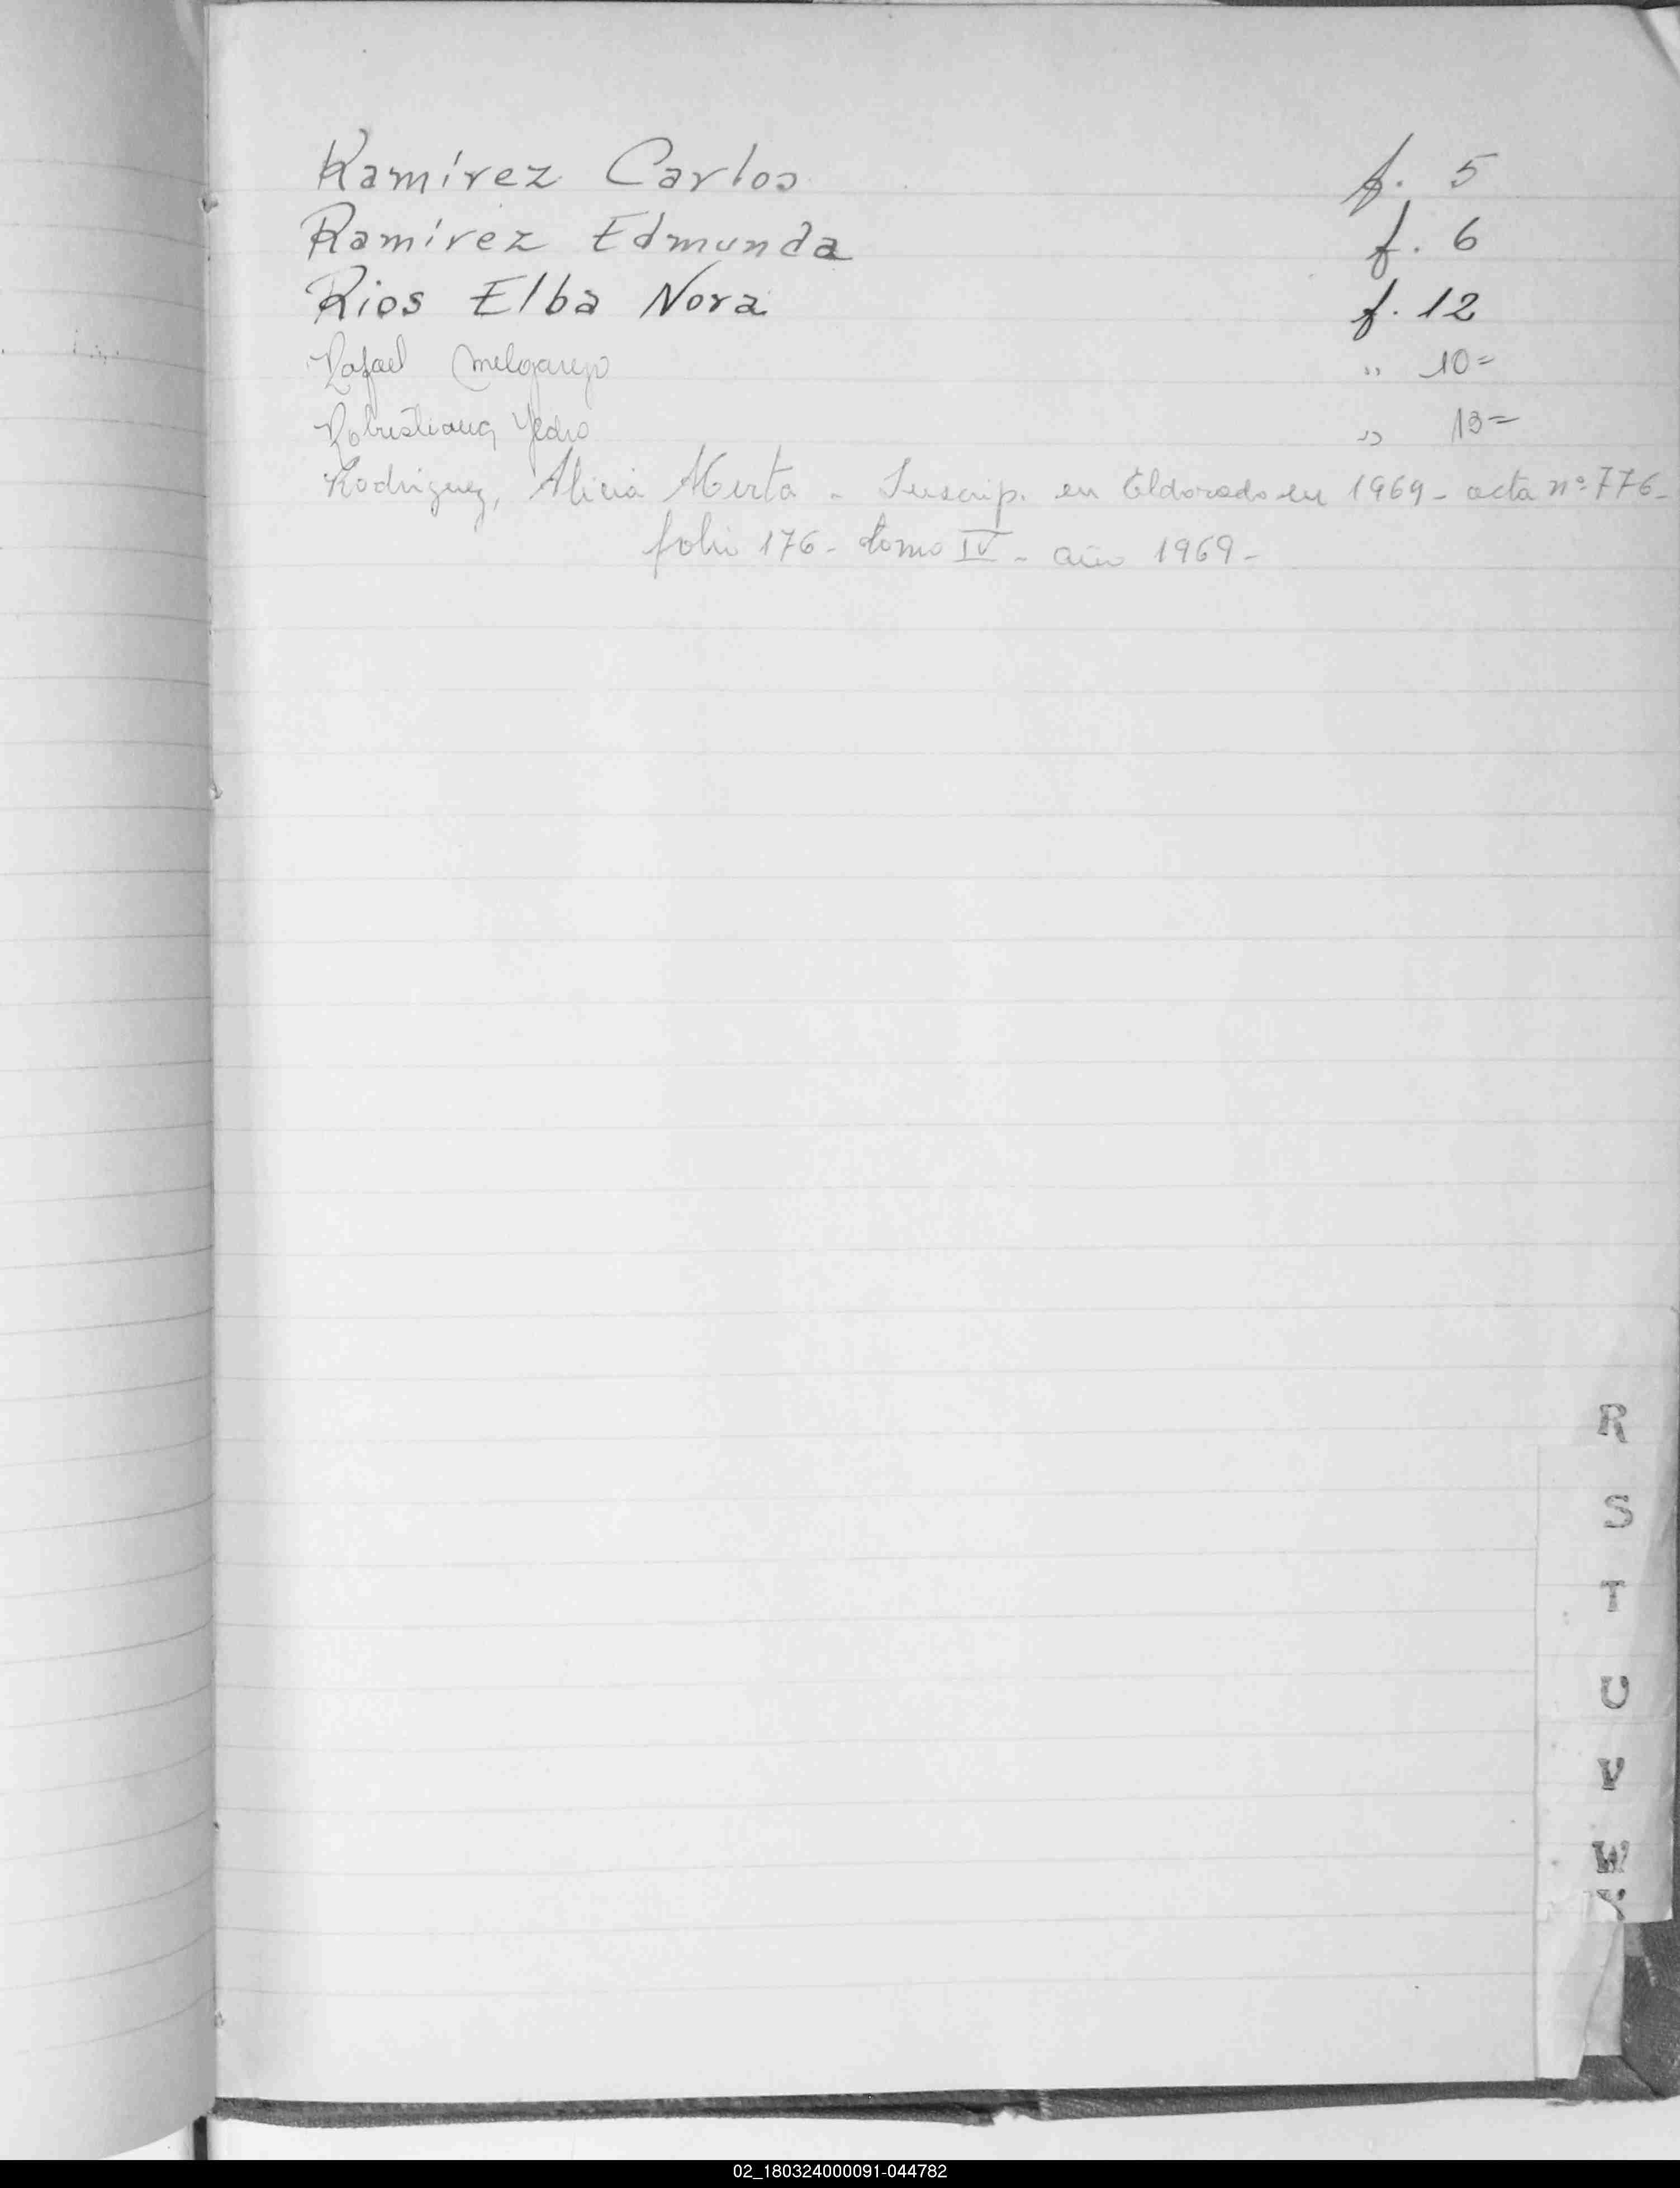 Ramírez Carlos f. 5
Ramírez Edmunda f. 6
Rios Elba Nora f. 12
Rafael Melgarejo " 10=
Robustiana Yedro " 13=
Rodriguez, Alicia Mirta - Inscrip. en Eldorado en 1969 - acta nº 776-
folio 176 - tomo IV - año 1969 -
R
S
T
U
V
W
Y
02_180324000091-044782